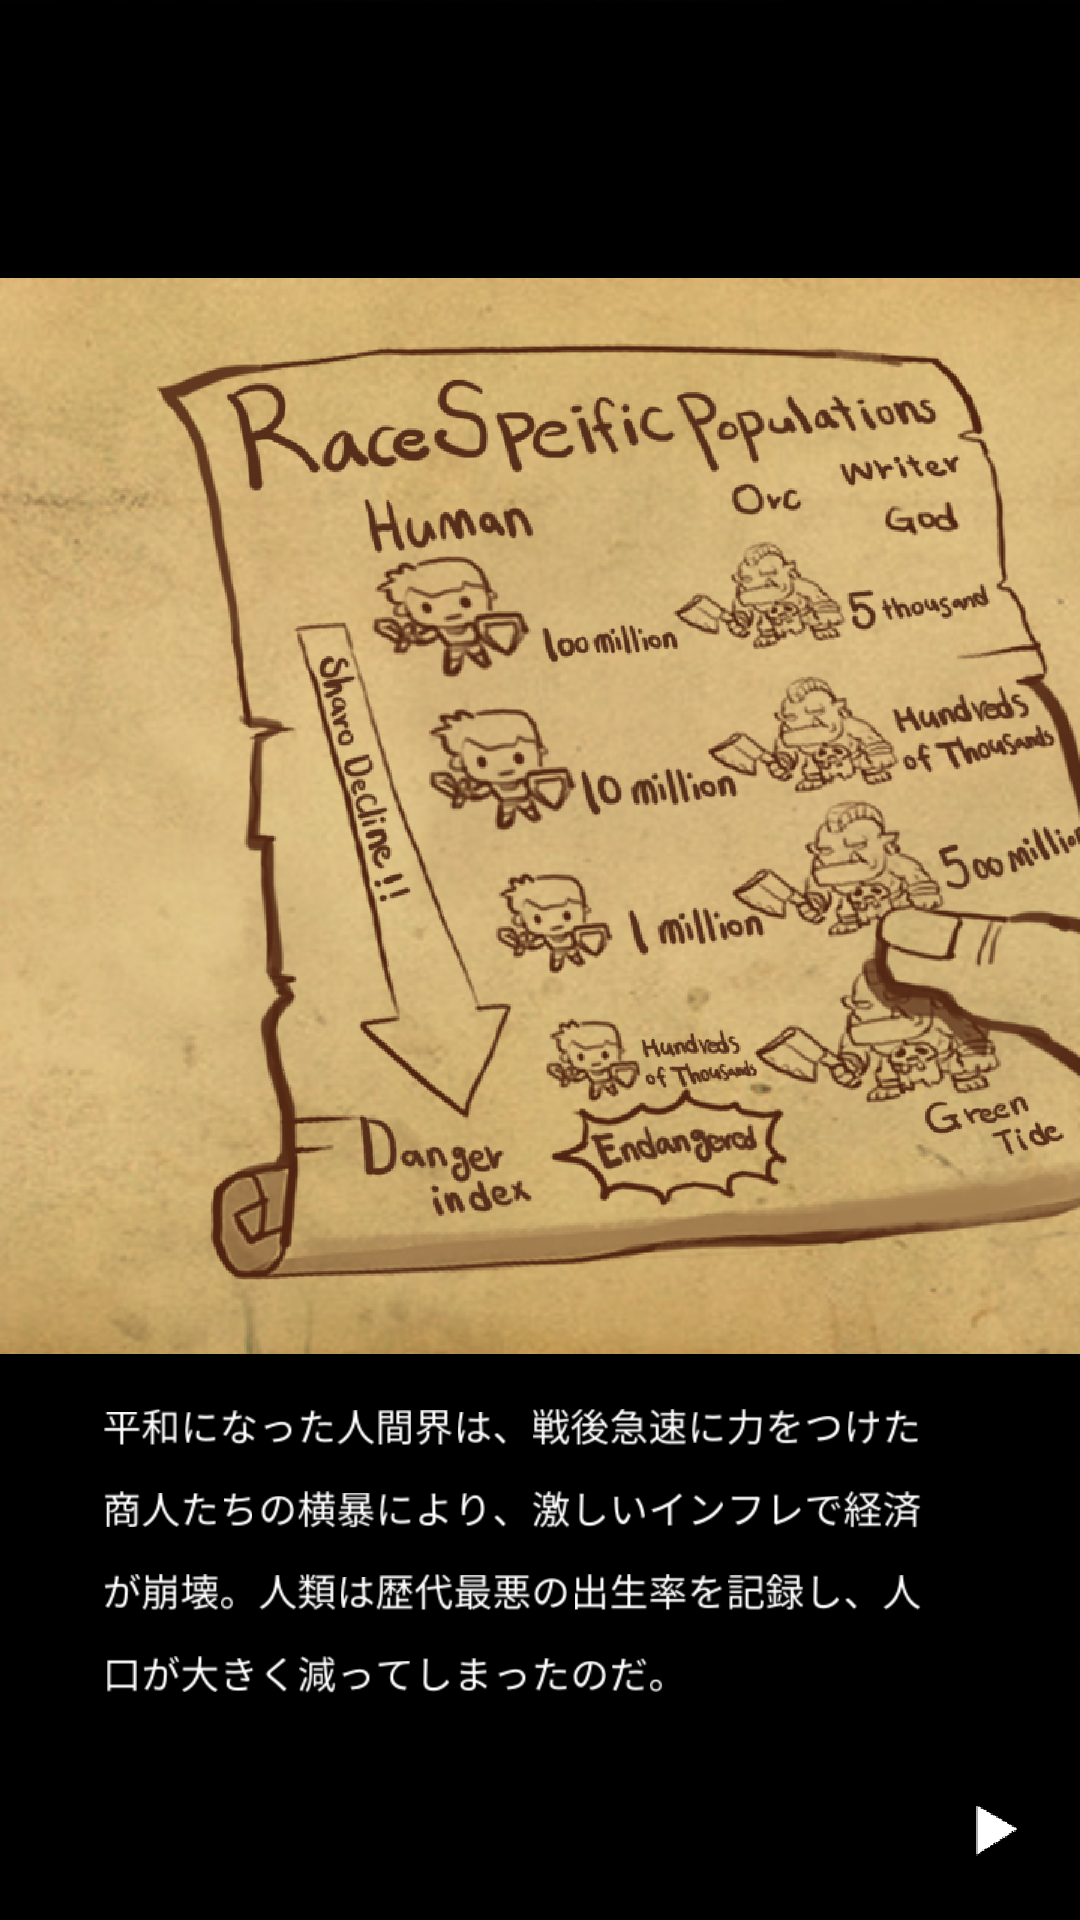 Race Speific Populations
Writer
God
Human
Orc
100 million
5 thousand
Sharo Decline!!
10 million
Hundreds
of Thousands
1 million
500 million
Hundreds
of Thousands
Green
Tide
Danger
index
Endangered
平和になった人間界は、戦後急速に力をつけた
商人たちの横暴により、激しいインフレで経済
が崩壊。人類は歴代最悪の出生率を記録し、人
口が大きく減ってしまったのだ。